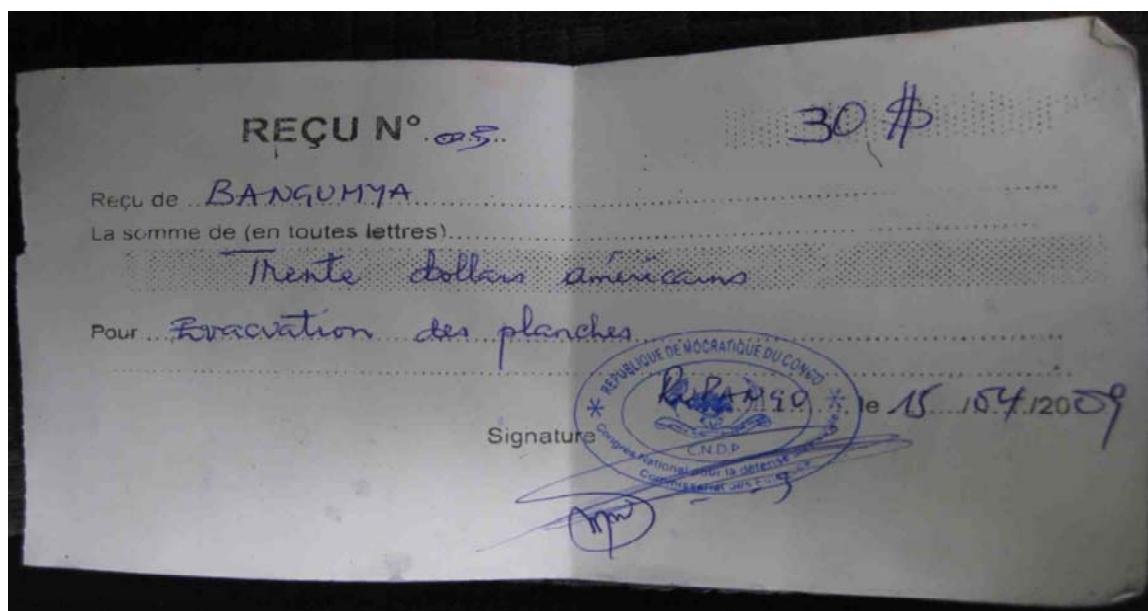 REÇU N° 005
30 $
Reçu de BANGUMYA
La somme de (en toutes lettres)
Trente dollars américains
Pour Evacuation des planches
REPUBLIQUE DEMOCRATIQUE DU CONGO
le 15/04/2009
Signature
C.N.D.P
Congrès National pour la défense
Commissariat des